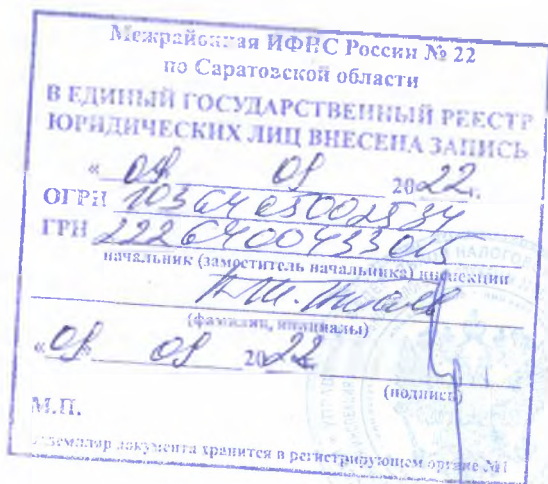 Межрайонная ИФНС России № 22
по Саратовской области
В ЕДИНЫЙ ГОСУДАРСТВЕННЫЙ РЕЕСТР
ЮРИДИЧЕСКИХ ЛИЦ ВНЕСЕНА ЗАПИСЬ
« 09 » 09 2022 г.
ОГРН
ГРН
начальник (заместитель начальника) инспекции
(фамилия, инициалы)
« 09 » 09 2022
(подпись)
М.П.
экземпляр документа хранится в регистрирующем органе №1